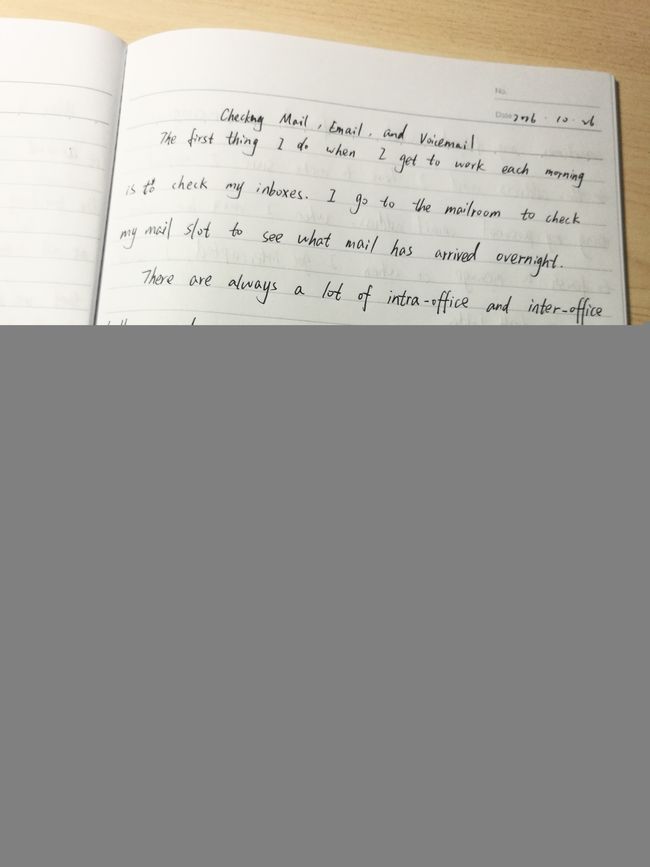 No.
Date 2016 · 10 · 26
Checking Mail, Email, and Voicemail
The first thing I do when I get to work each morning
is to check my inboxes. I go to the mailroom to check
my mail slot to see what mail has arrived overnight.
There are always a lot of intra-office and inter-office